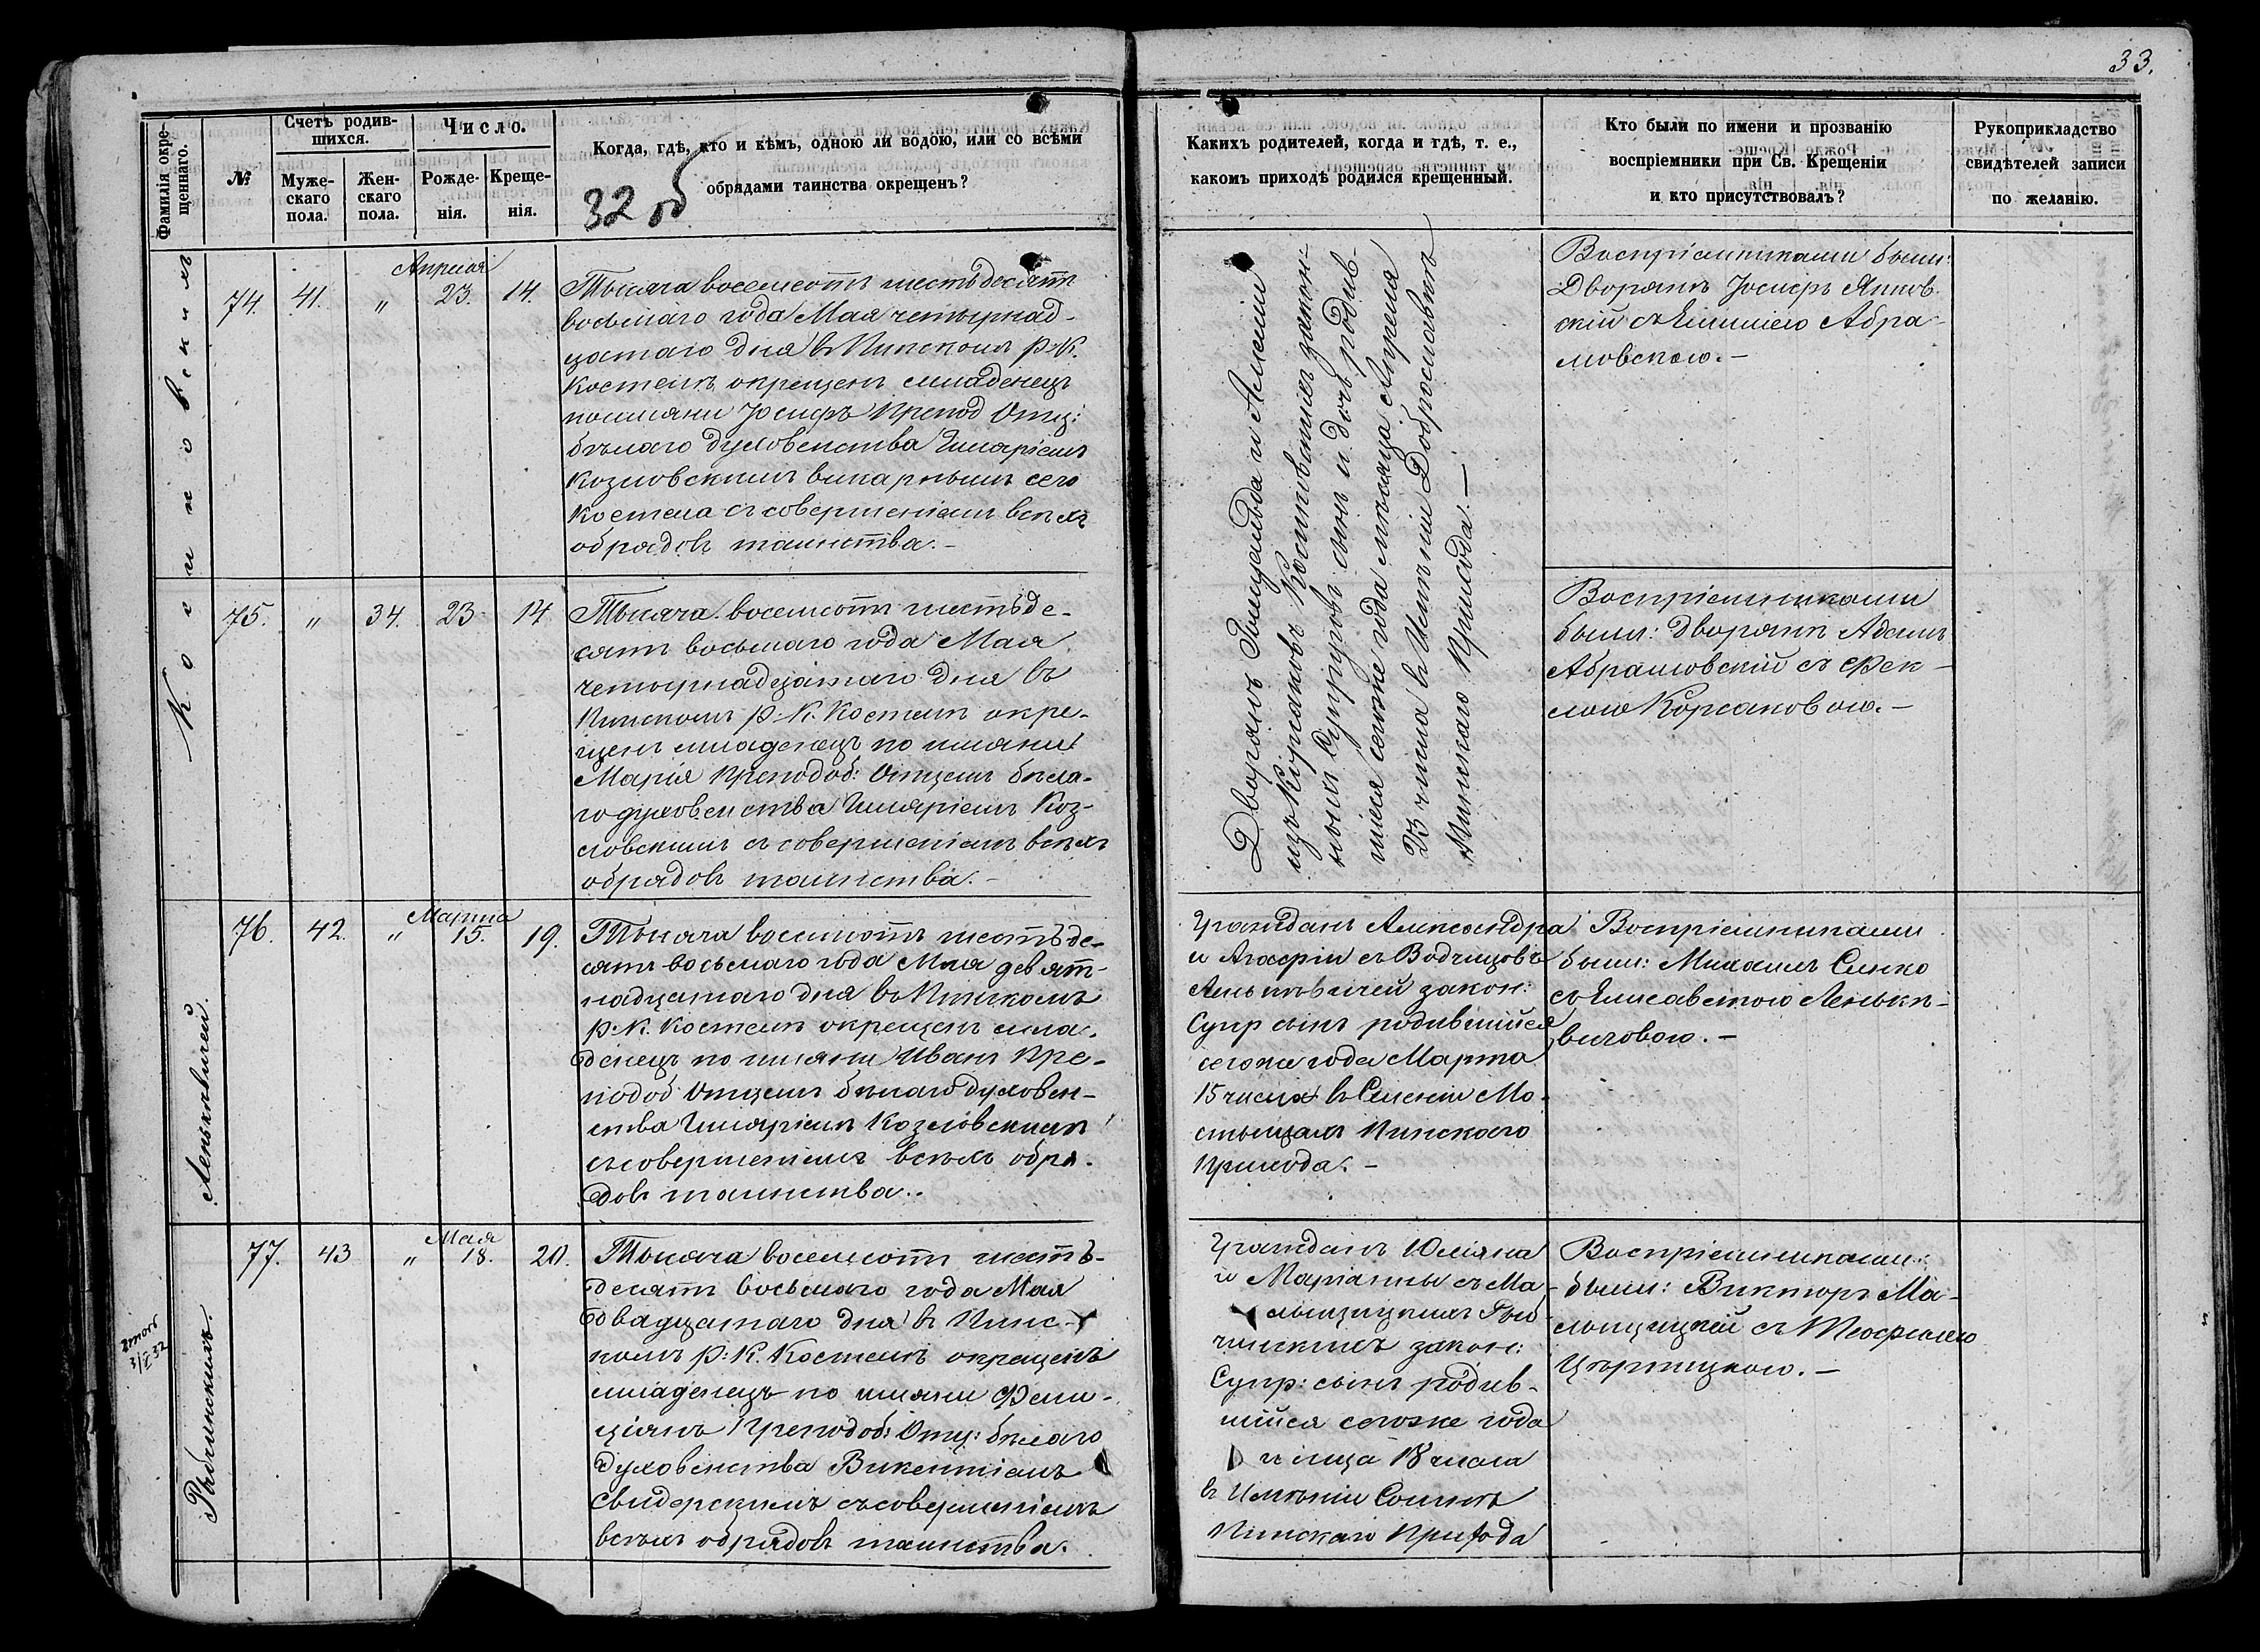 33.
Фамилія окре-
щеннаго.
№
Счетъ родив-
шихся.
Муже-
скаго
пола.
Жен-
скаго
пола.
Число.
Рожде-
нія.
Креще-
нія.
Когда, гдѣ, кто и кѣмъ, одною ли водою, или со всѣми
обрядами таинства окрещенъ?
32 об
Какихъ родителей, когда и гдѣ, т. е.,
какомъ приходѣ родился крещенный.
Кто были по имени и прозванію
воспріемники при Св. Крещеніи
и кто присутствовалъ?
Рукоприкладство
свидѣтелей записи
по желанію.
74. 41. „ Апреля 23. 14.
Тысяча восемсотъ шестьдесятъ
восьмаго года Мая четырнад-
цатаго дня въ Пинскомъ Р: К.
Костелѣ окрещенъ младенецъ
по имяни Іосифъ Препод Отц:
бѣлаго духовенства Иляріемъ
Козловскимъ викарнымъ сего
Костела съ совершеніемъ всѣхъ
обрядовъ таинства. –
Дворянъ Ромуальда и
изъ Корсаковъ закон-
ныхъ Супруговъ сынъ и дочь родив-
шіеся сегоже года мѣсяца Апреля
23 числа въ Имѣніи Доброславкѣ
Пинскаго Прихода. —
Воспріемниками были:
Дворянъ Іосифъ Янков
скій съ Абра-
мовскою. –
75. „ 34. 23 14
Тысяча восемсотъ шестьде-
сятъ восьмаго года Мая
четырнадцатаго дня въ
Пинскомъ Р: К. Костелѣ окре-
щенъ младенецъ по имяни
Марія Преподоб: Отцемъ бѣла-
го духовенства Иляріемъ Коз-
ловскимъ съ совершеніемъ всѣхъ
обрядовъ таинства. –
Воспріемниками
были: Дворянъ Адамъ
Абрамовскій съ Фек-
лою Корсаковою. –
Ленькевичей.
76. 42. „ Марта 15. 19.
Тысяча восемсотъ шестьде-
сятъ восьмаго года Мая девят-
надцатаго дня въ Пинскомъ
Р: К. Костелѣ окрещенъ мла-
денецъ по имяни Иванъ Пре-
подоб Отцемъ бѣлаго духовен-
ства Иляріемъ Козловскимъ
съ совершеніемъ всѣхъ обря-
довъ таинства..
Гражданъ Александра
и Агафіи съ Водчицовъ
закон:
Супр сынъ родившійся
сегоже года Марта
15 числа въ Селеніи Мо-
стыцахъ Пинскаго
Прихода. –
Воспріемниками
были: Михаилъ Сенко
съ Елисаветою Ленькѣ-
вичовою. –
Рыбчинскихъ.
77. 43 „ Мая 18. 20.
Тысяча восемсотъ шесть-
десятъ восьмаго года Мая
двадцатаго дня въ Пинс-
комъ Р: К. Костелѣ окрещенъ
младенецъ по имяни Фели-
ціянъ Преподоб: Отц: бѣлаго
духовенства Викентіемъ
Свидерскимъ съ совершеніемъ
всѣхъ обрядовъ таинства.
Гражданъ Юліяна
и Маріанны съ Ма-
закон:
Супр: сынъ родив-
шійся сегоже года
18 числа
въ Имѣніи
Пинскаго Прихода
Воспріемниками
были: Викторъ Ма-
съ Теофилею